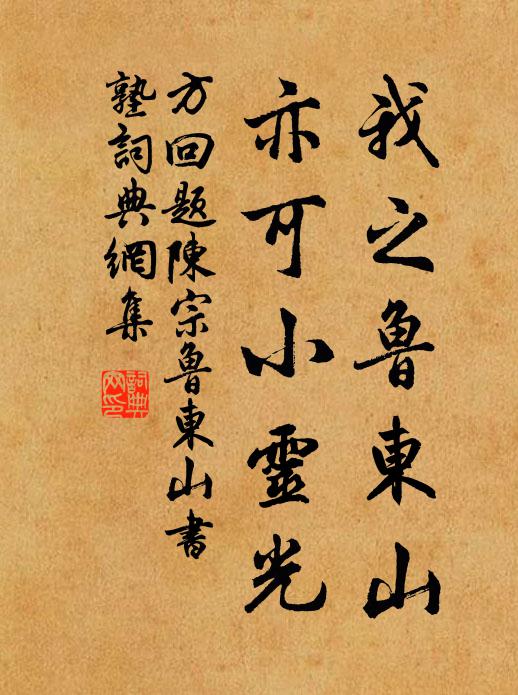 我之魯東山
亦可小靈光
方回題陳宗魯東山書
塾詞典網集
詞典網印